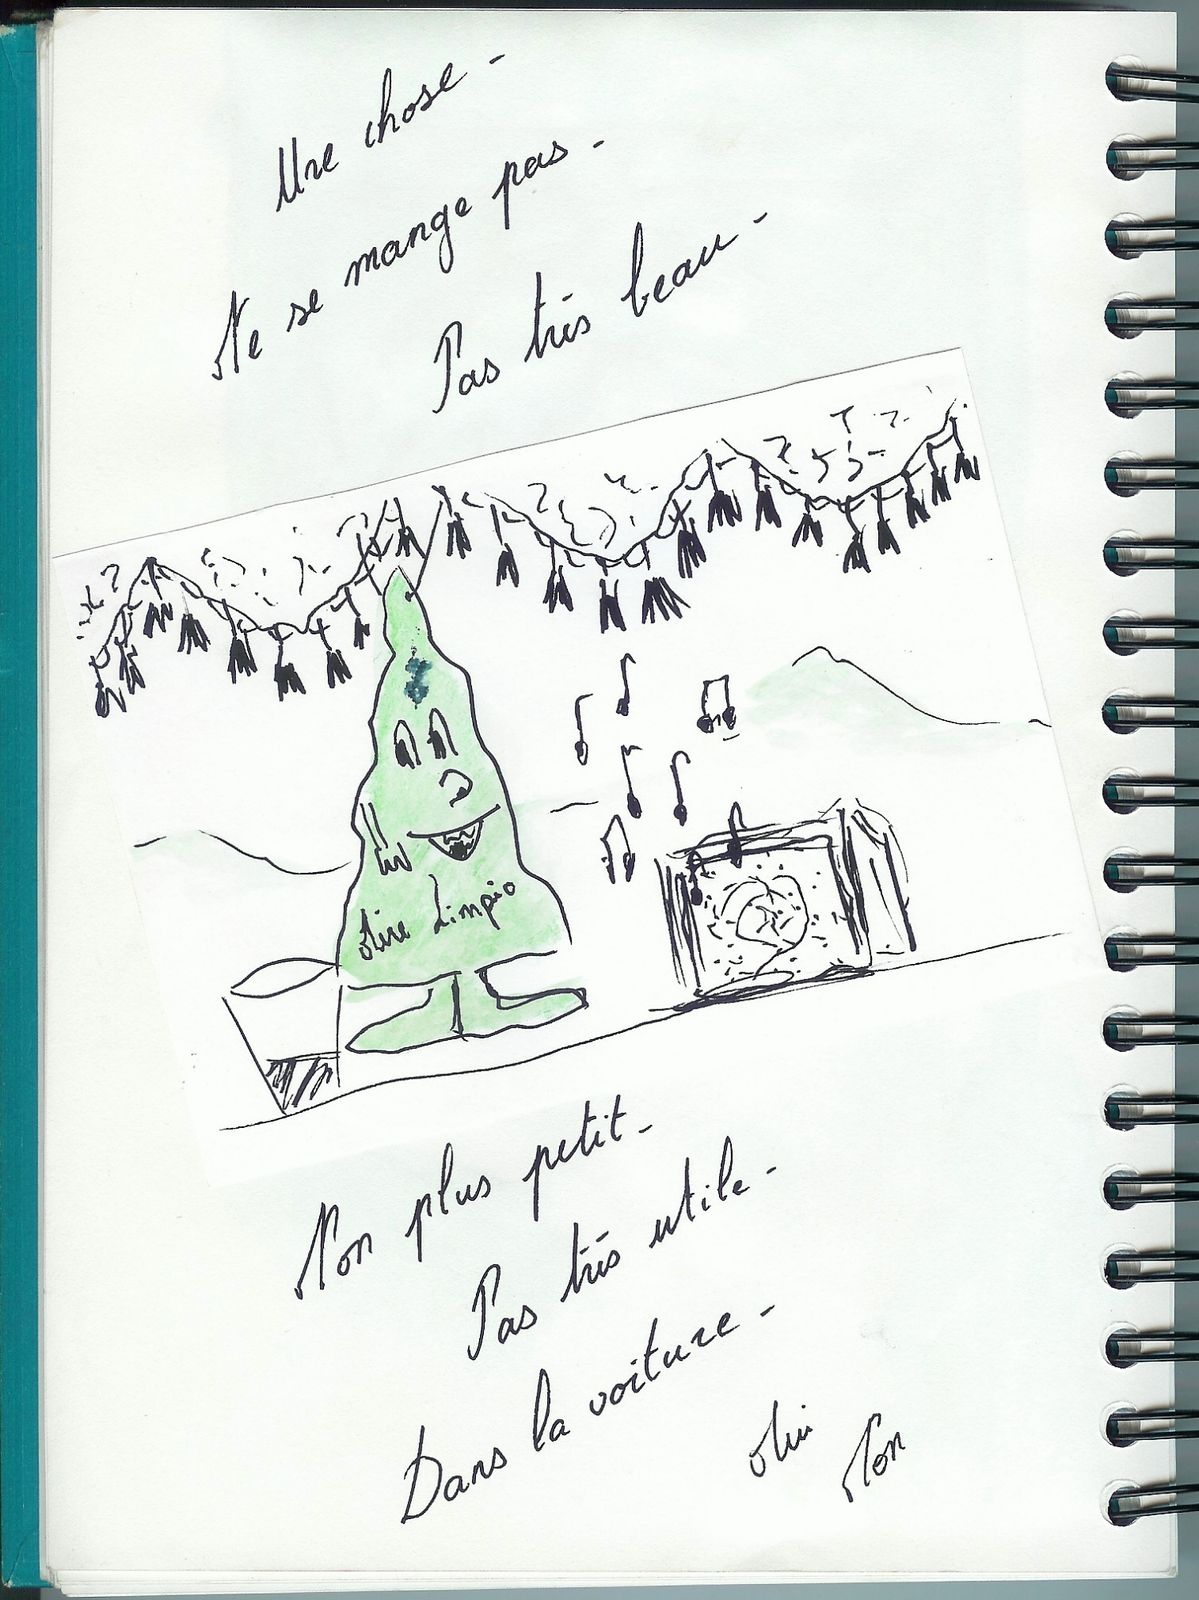 Une chose -
Ne se mange pas -
Pas très beau -
Aire Limpio
Non plus petit -
Pas très utile -
Dans la voiture -
Oui
Non